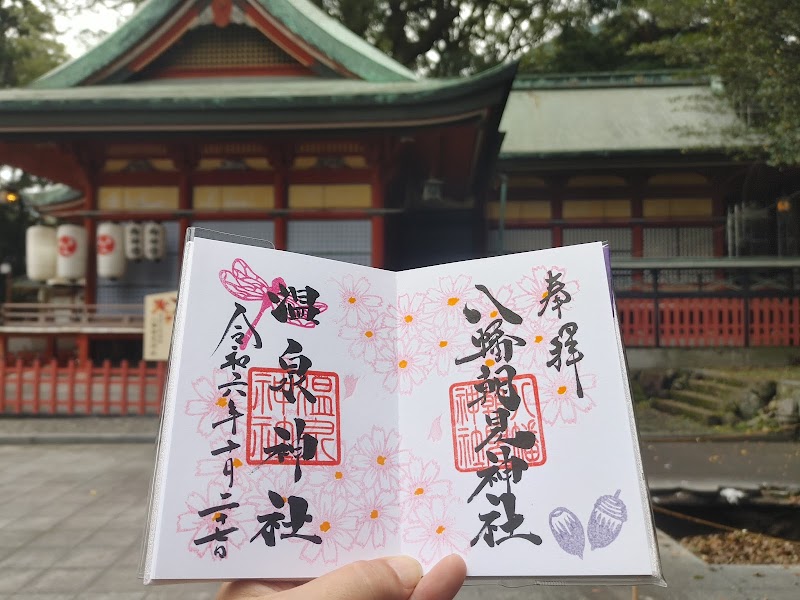 奉拝
八幡朝見神社
八幡朝見神社
温泉神社
温泉神社
令和六年十月二十七日